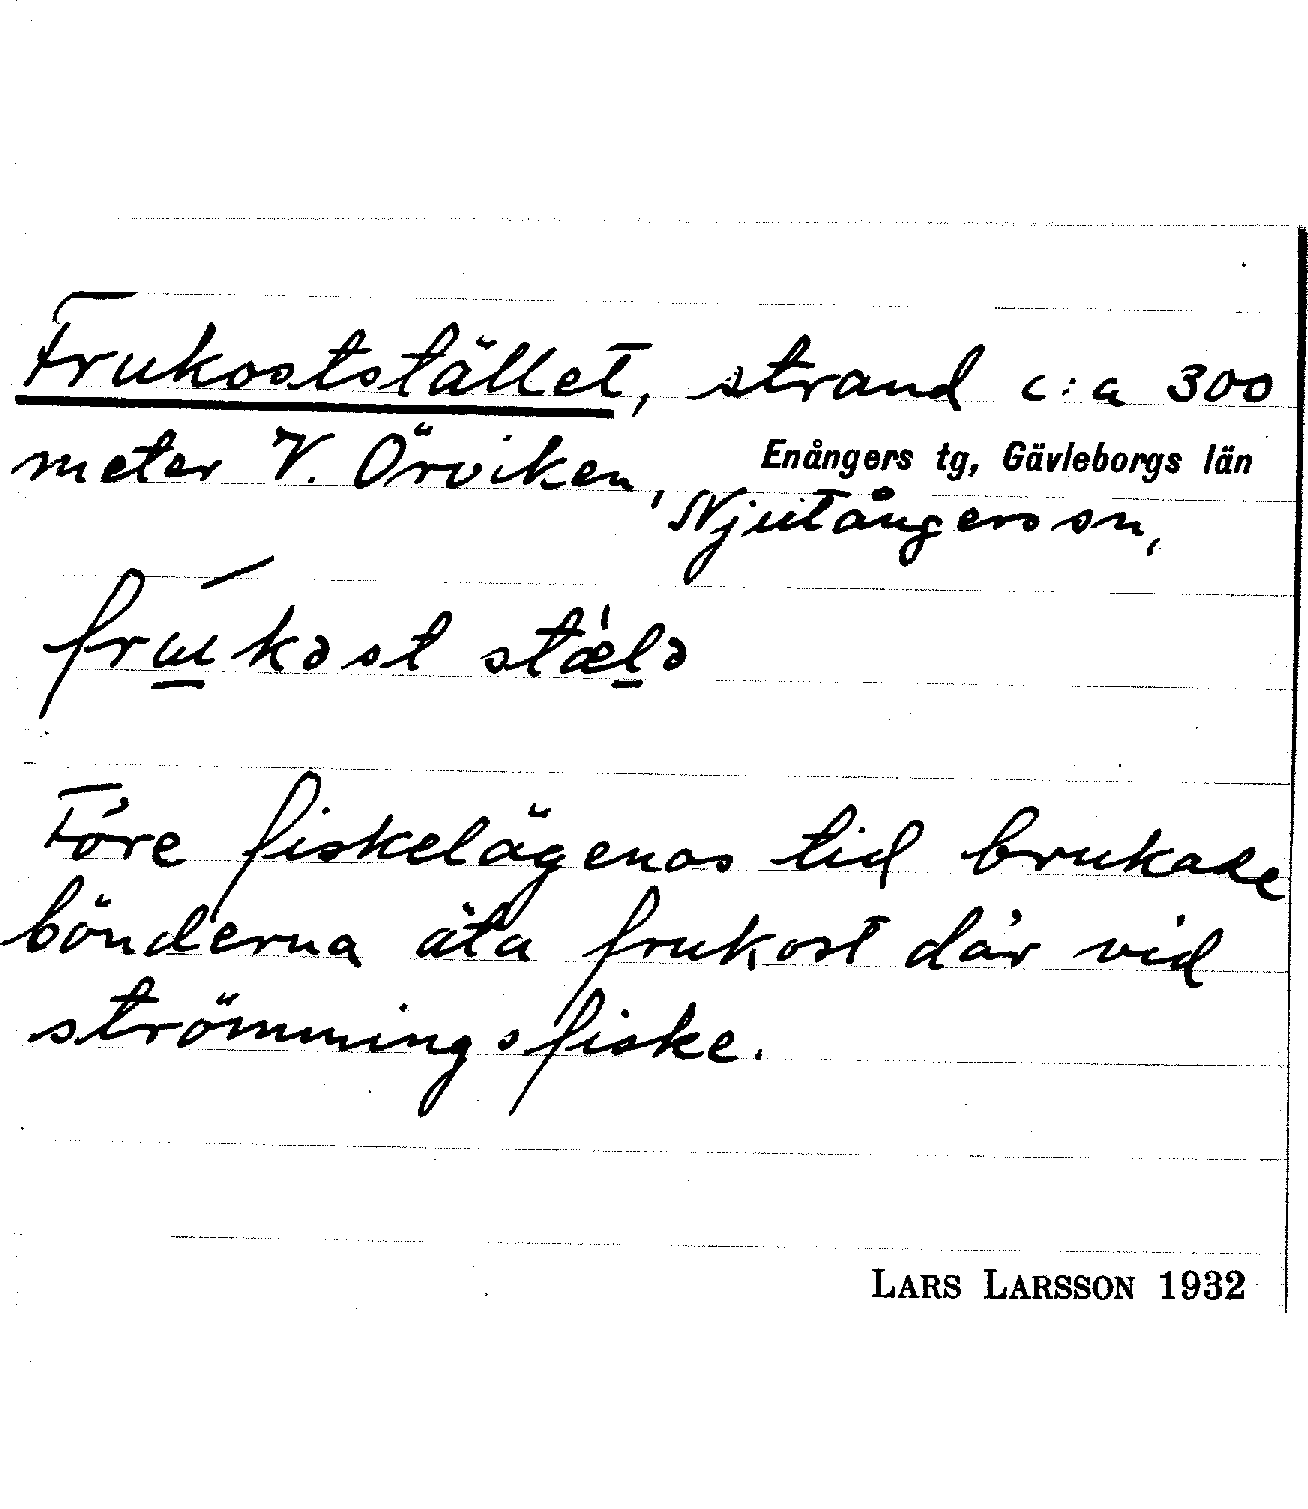 Frukoststället, strand c:a 300
meter V. Örviken, Enångers tg, Gävleborgs län
Njutångers sn,
frukəst stælə
Före fiskelägenas tid brukade
bönderna äta frukost där vid
strömmingsfiske.
LARS LARSSON 1932